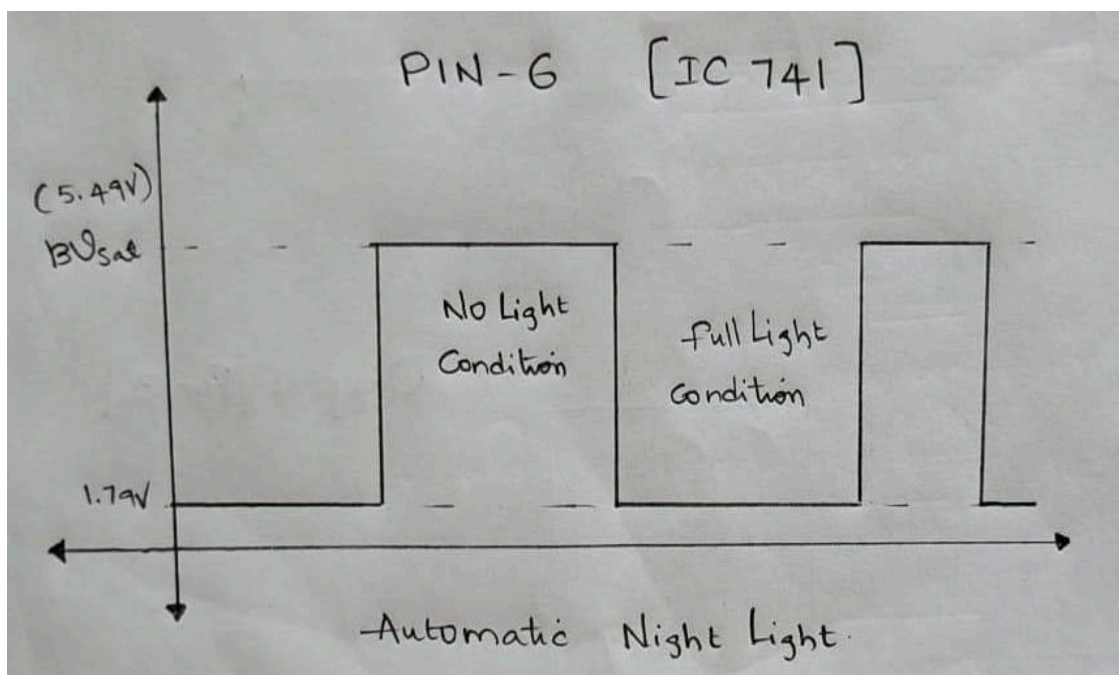 PIN-6 [IC 741]
(5.49V)
BVsat
No Light
Condition
full Light
Condition
1.79V
Automatic Night Light.